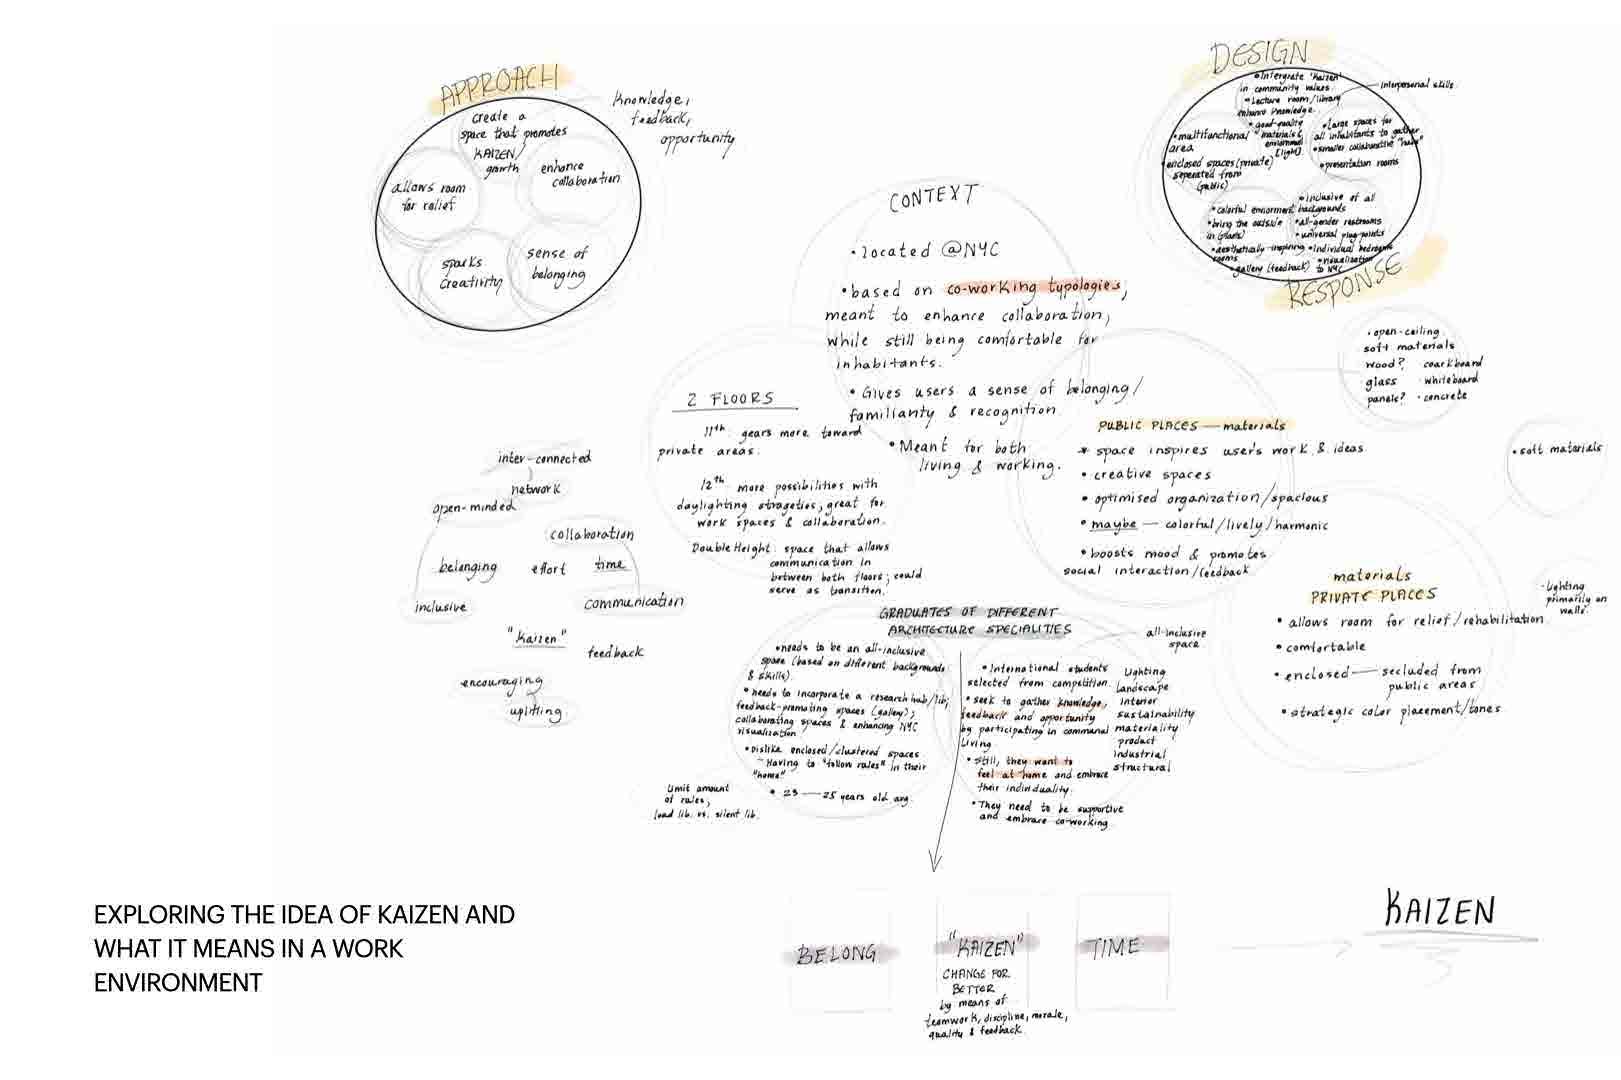 APPROACH
create a
space that promotes
KAIZEN/
growth
enhance
collaboration
allows room
for relief
sparks
creativity
sense of
belonging
Knowledge,
feedback,
opportunity
DESIGN
• Intergrate 'Kaizen'
in community values.
• Lecture room/library
enhance knowledge.
• good-quality
materials &
enviornment
(light).
• multifunctional
area
enclosed spaces (private)
seperated from
(public)
• Large spaces for
all inhabitants to gather
• smaller collaborative "hubs"
• presentation rooms
interpersonal skills
• colorful enviorment
• bring the outside
in (plants)
• aesthetically-inspiring
rooms
• gallery (feedback)
• inclusive of all
backgrounds
• all-gender restrooms
• universal plug-points
• individual bedrooms
• visualization
to NYC
RESPONSE
CONTEXT
• located @NYC
• based on co-working typologies,
meant to enhance collaboration,
while still being comfortable for
inhabitants.
• Gives users a sense of belonging/
familiarity & recognition.
• Meant for both
living & working.
2 FLOORS
11th: gears more toward
private areas.
12th: more possibilities with
daylighting strageties, great for
work spaces & collaboration.
Double Height: space that allows
communication in
between both floors; could
serve as transition.
• open-ceiling
soft materials
wood? • coarkboard
glass • whiteboard
panels? • concrete
PUBLIC PLACES — materials
* space inspires user's work & ideas.
• creative spaces
• optimised organization/spacious
• maybe — colorful/lively/harmonic
• boosts mood & promotes
social interaction/feedback
• soft materials
materials
PRIVATE PLACES
• allows room for relief/rehabilitation
• comfortable
• enclosed — secluded from
public areas
• strategic color placement/tones
• Lighting
primarily on
walls.
inter-connected
network
open-minded
collaboration
belonging effort time
inclusive
communication
"Kaizen"
feedback
encouraging
uplifting
GRADUATES OF DIFFERENT
ARCHITECTURE SPECIALITIES
all-inclusive
space.
• needs to be an all-inclusive
space (based on different backgrounds
& skills).
• needs to incorporate a research hub/lib;
feedback-promoting spaces (gallery);
collaborating spaces & enhancing NYC
visualization.
• Dislike enclosed/clustered spaces
- Having to "follow rules" in their
"home"
• 23 — 25 years old avg.
Limit amount
of rules,
loud lib. vs. silent lib.
• International students
selected from competition.
• seek to gather knowledge,
feedback and opportunity
by participating in communal
living.
• Still, they want to
feel at home and embrace
their individuality.
• They need to be supportive
and embrace co-working.
Lighting
Landscape
interior
sustainability
materiality
product
industrial
structural
BELONG
"KAIZEN"
CHANGE FOR
BETTER
by means of
teamwork, discipline, morale,
quality & feedback.
TIME
KAIZEN
EXPLORING THE IDEA OF KAIZEN AND
WHAT IT MEANS IN A WORK
ENVIRONMENT